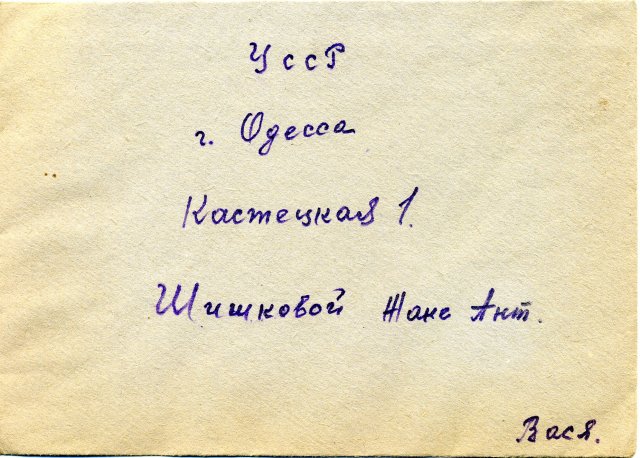 УссР
г. Одесса
Кастецкая 1.
Шишковой Жане Ант.
Вася.